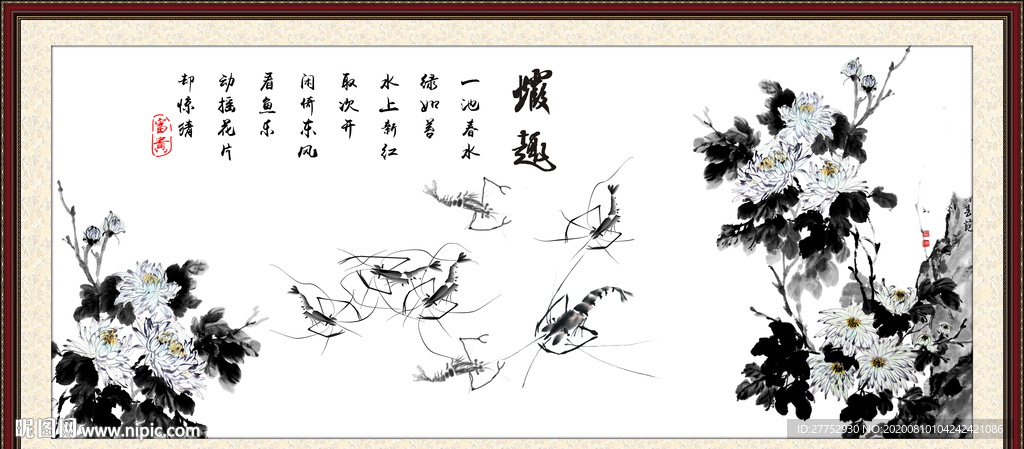 蝦趣
一池春水
绿如苔
水上新红
取次开
闲倚东风
看鱼乐
动摇花片
却惊猜
富贵
昵图网 www.nipic.com
ID:27752930 NO:20200810104242421086